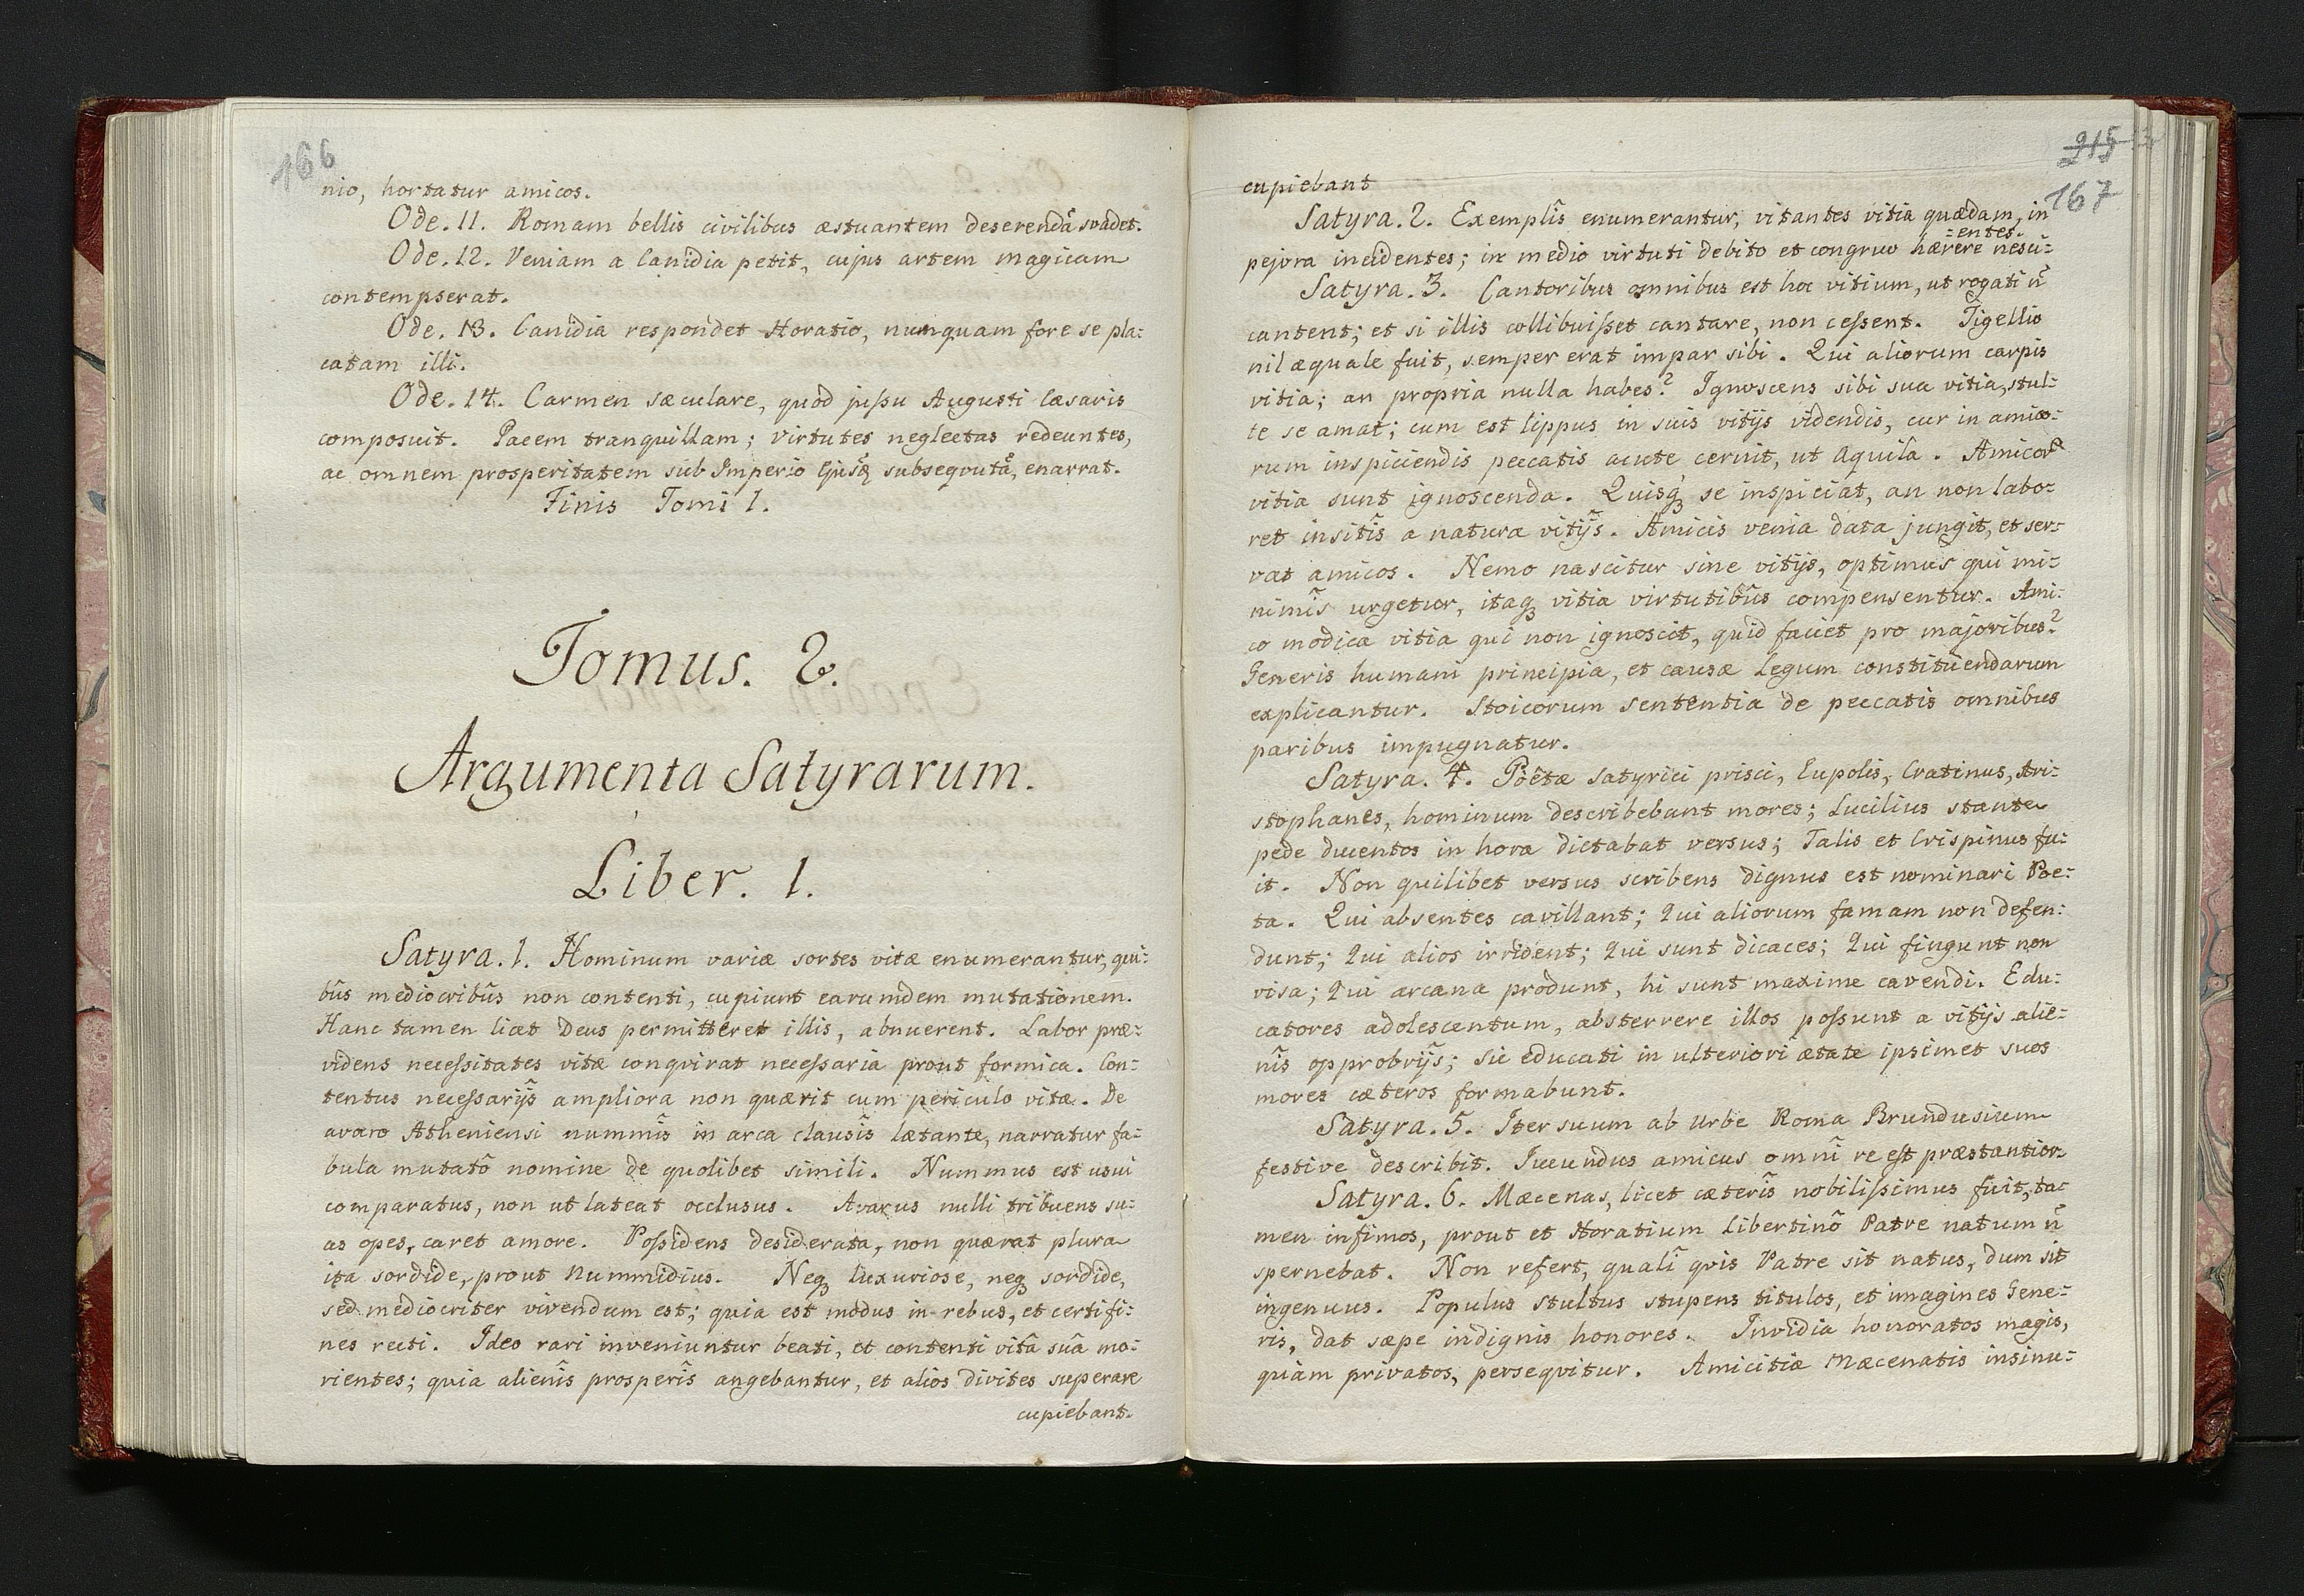 166
nio, hortatur amicos.
Ode. 11. Romam bellis civilibus æstuantem deserendã svadet.
Ode. 12. Veniam a Canidia petit, cujus artem magicam
contempserat.
Ode. 13. Canidia respondet Horatio, nunquam fore se pla:
catam illi.
Ode. 14. Carmen sæculare, quod jussu Augusti Cæsaris
composuit. Pacem tranquillam; virtutes neglectas redeuntes,
ac omnem prosperitatem sub Imperio Ejusq̃ subseqvutã, enarrat.
Finis Tomi 1.
Tomus. 2.
Argumenta Satyrarum.
Liber. 1.
Satyra. 1. Hominum variæ sortes vitæ enumerantur, qui:
bûs mediocribûs non contenti, cupiunt earumdem mutationem.
Hanc tamen licet Deus permitteret illis, abnuerent. Labor præ:
videns necessitates vitæ conqvirat necessaria prout formica. Con:
tentus necessarijs̃ ampliora non quærit cum periculo vitæ. De
avaro Atheniensi nummis̃ in arca clausis̃ lætante, narratur fa:
bula mutatô nomine de quolibet simili. Nummus est usui
comparatus, non ut lateat occlusus. Avarus nulli tribuens su:
as opes, caret amore. Possidens desiderata, non quærat plura
ita sordide, prout Nummidius. Neq₃ luxuriose, neq₃ sordide,
sed mediocriter vivendum est; quia est modus in rebus, et certi fi:
nes recti. Ideo rari inveniuntur beati, et contenti vitâ suâ mo:
rientes; quia alienîs prosperîs angebantur, et alios divites superare
cupiebant.
215
167
cupiebant
Satyra. 2. Exemplîs enumerantur, vitantes vitia quædam, in
=entes.
pejora incidentes; in medio virtuti debito et congruo hærere nesci=
Satyra. 3. Cantoribus omnibus est hoc vitium, ut rogati ñ
cantent; et si illis collibuisset cantare, non cessent. Tigellio
nil æquale fuit, semper erat impar sibi. Qui aliorum carpis
vitia; an propria nulla habes? Ignoscens sibi sua vitia, stul:
te se amat; cum est lippus in suis vitijs videndis, cur in amico:
rum inspiciendis peccatis acute cernit, ut Aquila. Amicoꝝ
vitia sunt ignoscenda. Quisq₃ se inspiciat, an non labo:
ret insitîs a natura vitijs̃. Amicis venia data jungit, et ser:
vat amicos. Nemo nascitur sine vitijs, optimus qui mi:
nimîs urgetur, itaq₃ vitia virtutibûs compensentur. Ami:
co modica vitia qui non ignoscit, quid faciet pro majoribus?
Generis humani principia, et causæ Legum constituendarum
explicantur. Stoicorum sententia de peccatis omnibus
paribus impugnatur.
Satyra. 4. Poëtæ satyrici prisci, Eupolis, Cratinus, Ari:
stophanes, hominum describebant mores; Lucilius stante
pede ducentos in hora dictabat versus; Talis et Crispinus fu:
it. Non quilibet versus scribens dignus est nominari Poe:
ta. Qui absentes cavillant; Qui aliorum famam non defen:
dunt; Qui alios irrident; Qui sunt dicaces; Qui fingunt non
visa; Qui arcana produnt, hi sunt maxime cavendi. Edu:
catores adolescentum, absterrere illos possunt a vitijs alie:
nîs opprobrijs̃; sic educati in ulteriori ætate ipsimet suos
mores cæteros formabunt.
Satyra. 5. Iter suum ab Urbe Roma Brundusium
festive describit. Jucundus amicus omnî re est præstantior.
Satyra. 6. Mæcenas, licet cæterîs nobilissimus fuit, ta:
men infimos, prout et Horatium Libertinô Patre natum ñ
spernebat. Non refert, qualî qvis Patre sit natus, dum sit
ingenuus. Populus stultus stupens titulos, et imagines Gene:
ris, dat sæpe indignis honores. Invidia honoratos magis,
quàm privatos, perseqvitur. Amicitiæ Mæcenatis insinu: